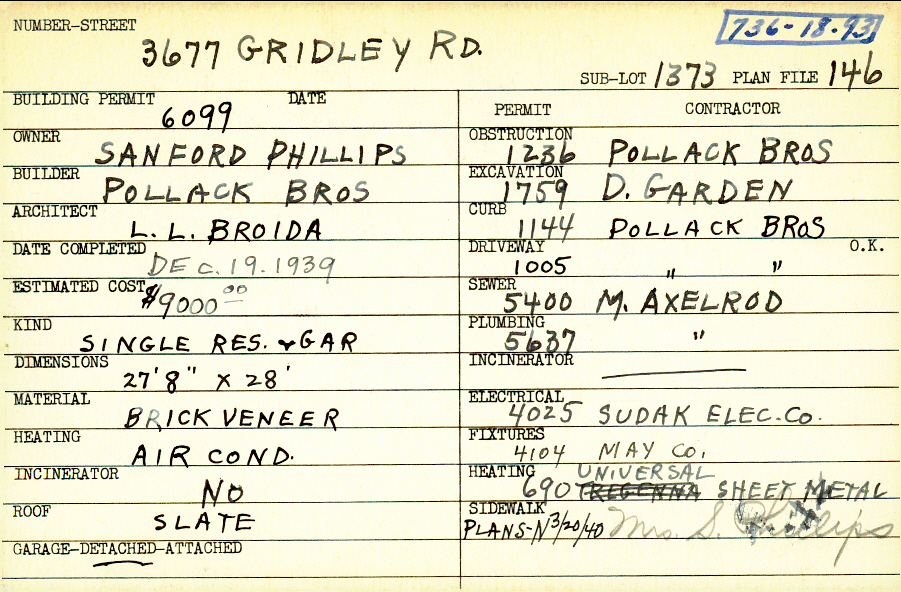 NUMBER-STREET
3677 GRIDLEY RD.
736-18-93
SUB-LOT 1373 PLAN FILE 146
BUILDING PERMIT DATE
6099
OWNER
SANFORD PHILLIPS
BUILDER
POLLACK BROS
ARCHITECT
L. L. BROIDA
DATE COMPLETED
DEC. 19. 1939
ESTIMATED COST
$9000.00
KIND
SINGLE RES. & GAR
DIMENSIONS
27'8" X 28'
MATERIAL
BRICK VENEER
HEATING
AIR COND.
INCINERATOR
NO
ROOF
SLATE
GARAGE-DETACHED-ATTACHED
PERMIT CONTRACTOR
OBSTRUCTION
1236 POLLACK BROS
EXCAVATION
1759 D. GARDEN
CURB
1144 POLLACK BROS
DRIVEWAY O.K.
1005 " "
SEWER
5400 M. AXELROD
PLUMBING
5637 "
INCINERATOR
ELECTRICAL
4025 SUDAK ELEC. Co.
FIXTURES
4104 MAY Co.
HEATING UNIVERSAL
690 TREGENNA SHEET METAL
SIDEWALK
PLANS-N 3/20/40 Mrs. S. Phillips